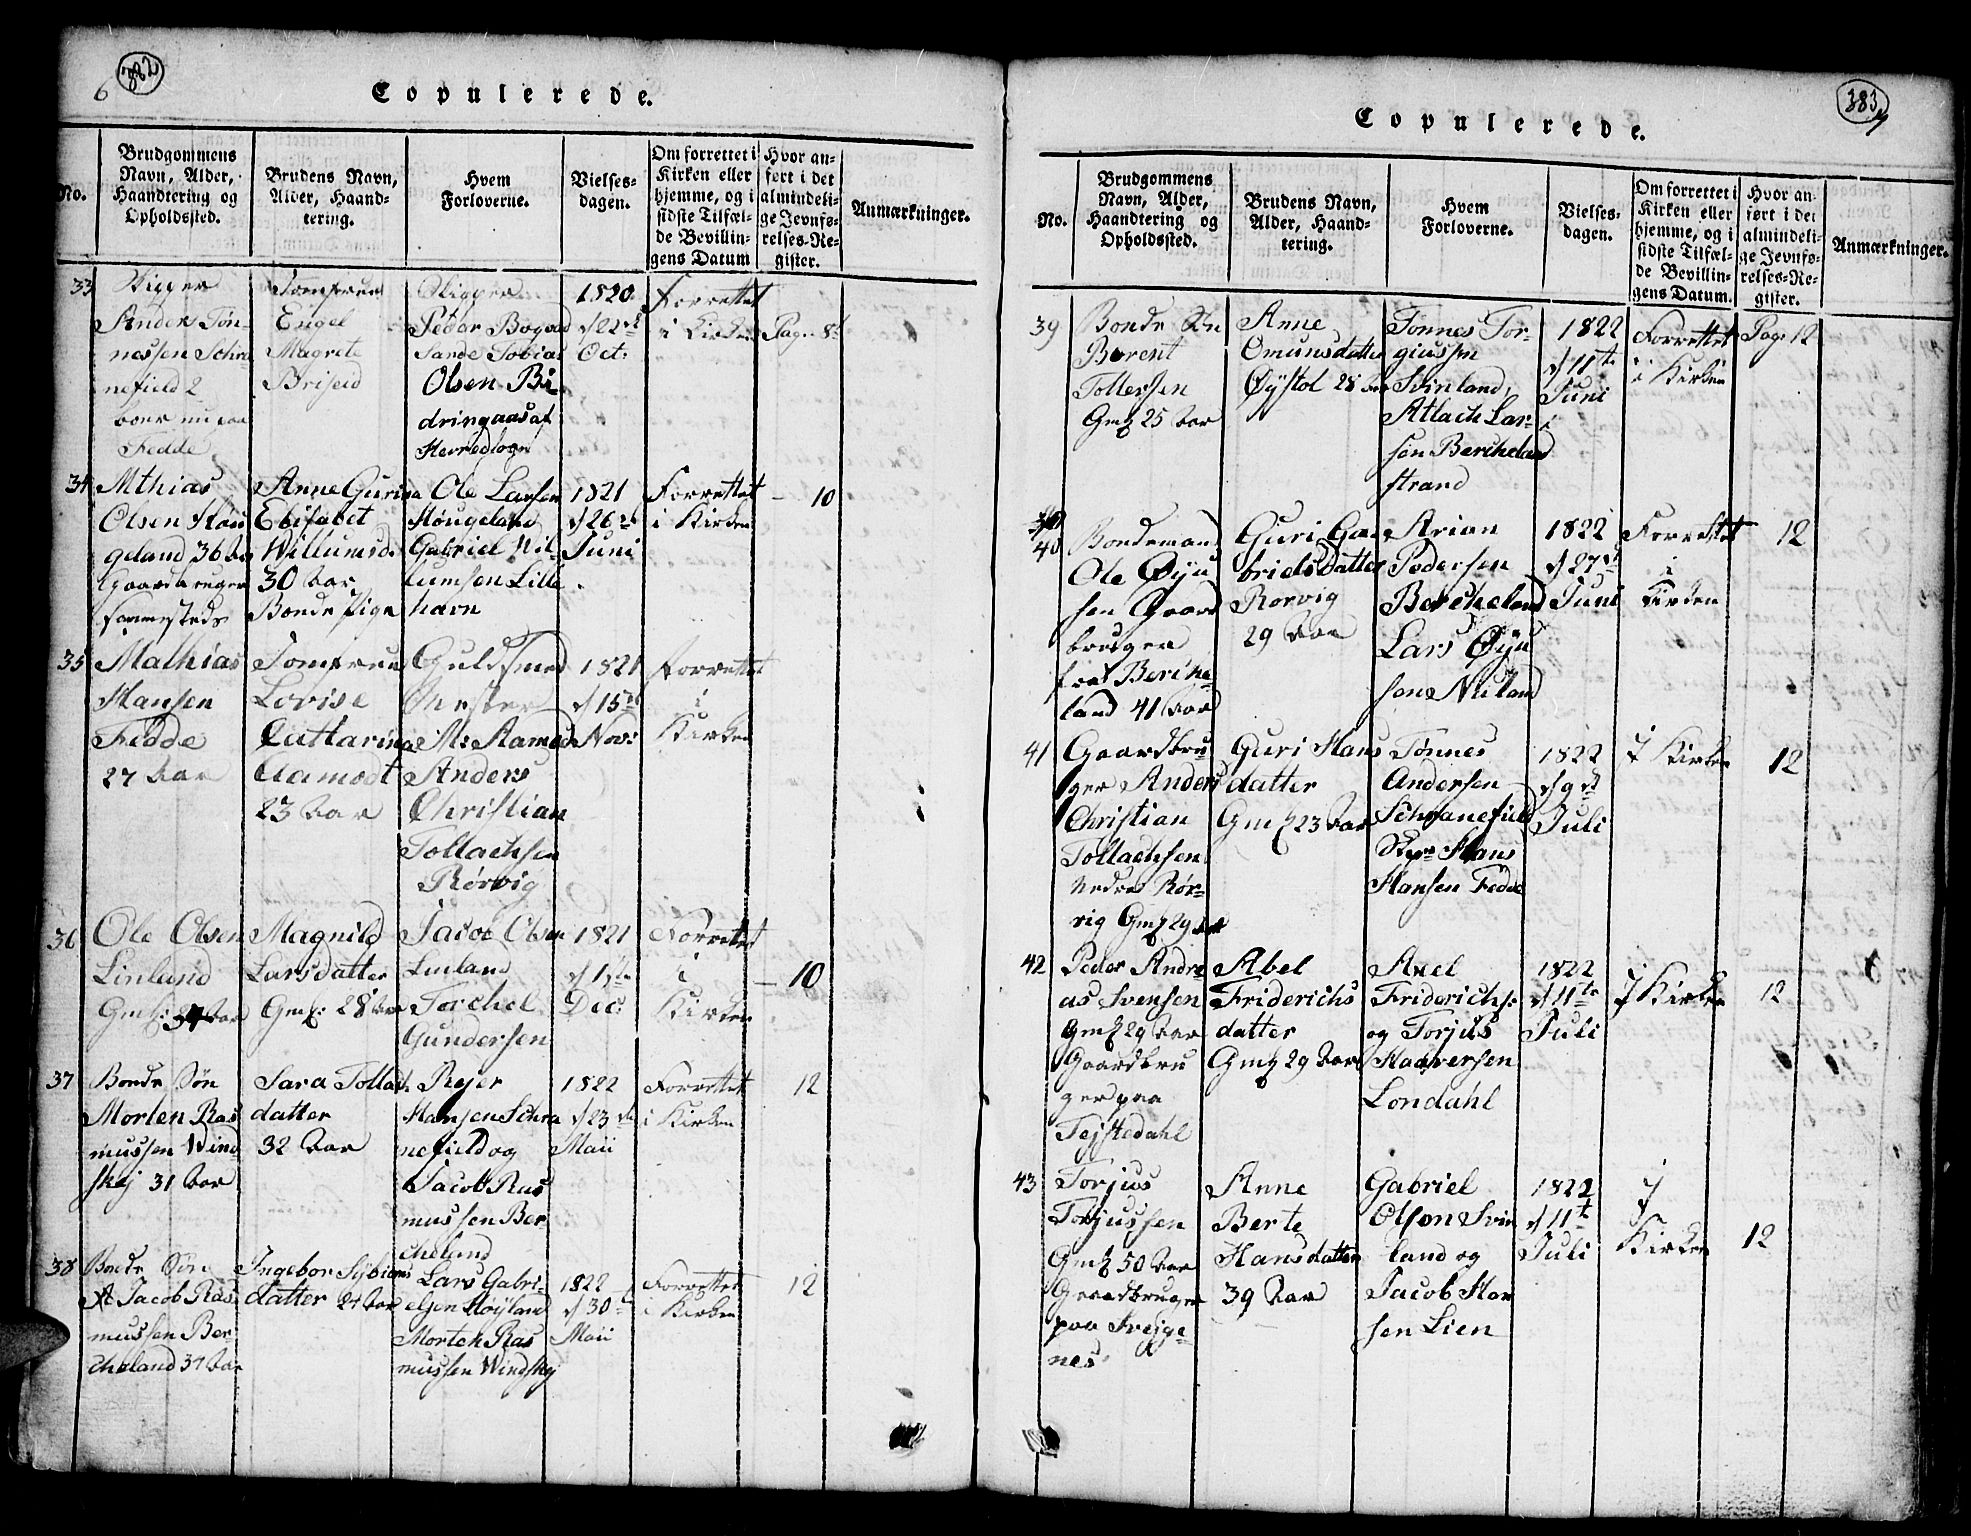 6
382
Copulerede.
No.
Brudgommens
Navn, Alder,
Haandtering og
Opholdssted.
Brudens Navn,
Alder, Haand-
tering.
Hvem
Forloverne.
Vielses-
dagen.
Om forrettet i
Kirken eller
hjemme, og i
sidste Tilfæl-
de Bevillin-
gens Datum
Hvor an-
ført i det
almindeli-
ge Jevnfø-
relses-Re-
gister.
Anmærkninger.
33
Anders Tøn-
nessen Schra
nefield
boer nu paa
Fedde
Jomfrue
Engel
Magrete
Briseid
Peder Bogvad
Sande Tobias
Olsen Bi
dringaas af
Herred sogn
1820
d 22de
Oct:
Forrettet
i Kirken
Pag. 8
34
Mthias
Olsen Høu
geland 36 Aar
Gaardbruger
sammesteds
Anne Gurina
Elisabet
Willumsd:
30 Aar
Bonde Pige
Ole Larsen
Høugeland
Gabriel Wil
lumsen Lille
havn
1821
d 26de
Juni
Forrettet
i Kirken
10
35
Mathias
Hansen
Fedde
27 Aar
Jomfrue
Lovise
Cattarina
Aamodt
23 Aar
Guldsmed
Mester
Mr Aamodt
Anders
Christian
Tollachsen
Rørvig
1821
d 15de
Nov:
Forrettet
i
Kirken
36
Ole Olsen
Linlund
Gmk: 34 Aar
Magnild
Larsdatter
Gmk: 28 Aar
Jacob Olsen
Linland
Torchel
Gundersen
1821
d 1ste
Dec:
Forrettet
i
Kirken
10
37
Bonde Søn
Morten Ras
mussen Wind
skej 31 Aar
Sara Tollach
datter
32 Aar
Rejer
Hansen Schra
nefield og
Jacob Ras
mussen Ber
cheland
1822
d 23de
Maii
Forrettet
i Kirken
12
38
Bonde Søn
Jacob Ras
mussen Ber-
cheland 37 Aar
Ingebor Sybions
datter 24 Aar
Lars Gabri-
elsen Høyland
Morten Ras
mussen Windskej
1822
d 30te
Maii
Forrettet
i Kirken
12
383
7
Copulerede.
No.
Brudgommens
Navn, Alder,
Haandtering og
Opholdssted.
Brudens Navn,
Alder, Haand-
tering.
Hvem
Forloverne.
Vielses-
dagen.
Om forrettet i
Kirken eller
hjemme, og i
sidste Tilfæl-
de Bevillin-
gens Datum.
Hvor an-
ført i det
almindeli-
ge Jevnfø-
relses-Re-
gister.
Anmærkninger.
39
Bonde Søn
Berent
Tollefsen
Gmk 25 Aar
Anne
Omunsdatter
Øystol 28 Aar
Tonnes Tor-
giussen
Svinland,
Atlach Lar-
sen Bercheland
strand
1822
d 11te
Juni
Forrettet
i Kirken
Pag 12
40
Bondemand
Ole Øyu
sen Gaard
bruger
Berche-
land 41 Aar
Guri Ga
brielsdatter
Rorvig
29 Aar
Arian
Pedersen
Bercheland
Lars Øyu
sen Nuland
1822
d 27de
Juni
Forrettet
i
Kirken
12
41
Gaardbru
ger Anders
Christian
Tollachsen
Nedre Rør-
vig Gmk 29 Aar
Guri Hans
datter
Gmk 23 Aar
Tønnes
Andersen
Schranefield
Hans
Hansen Fedde
1822
d 9de
Juli
I Kirken
12
42
Peder Andre
as Svensen
Gmk 29 Aar
Gaardbru
ger paa
Tejstedahl
Abel
Friderichs
datter
Gmk 29 Aar
Axel
Friderichs:
og Torjus
Haaversen
Londahl
1822
d 11te
Juli
I Kirken
12
43
Torjus
Torjussen
Gmk 50 Aar
Gaardbruger
paa Svejge-
nes
Anne
Berte
Hansdatter
39 Aar
Gabriel
Olson Svin
land og
Jacob Han
sen Lien
1822
d 11te
Juli
I
Kirken
12